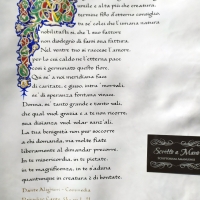 umile e alta più che creatura,
termine fisso d'etterno consiglio,
tu se' colei che l'umana natura
nobilitasti sì, che 'l suo fattore
non disdegnò di farsi sua fattura.
Nel ventre tuo si raccese l'amore,
per lo cui caldo ne l'etterna pace
così è germinato questo fiore.
Qui se' a noi meridiana face
di caritate, e giuso, intra i mortali,
se' di speranza fontana vivace.
Donna, se' tanto grande e tanto vali,
che qual vuol grazia e a te non ricorre,
sua disianza vuol volar sanz'ali.
La tua benignità non pur soccorre
a chi domanda, ma molte fiate
liberamente al dimandar precorre.
In te misericordia, in te pietate,
in te magnificenza, in te s'aduna
quantunque in creatura è di bontate.
Dante Alighieri - Commedia
Scritto a Mano